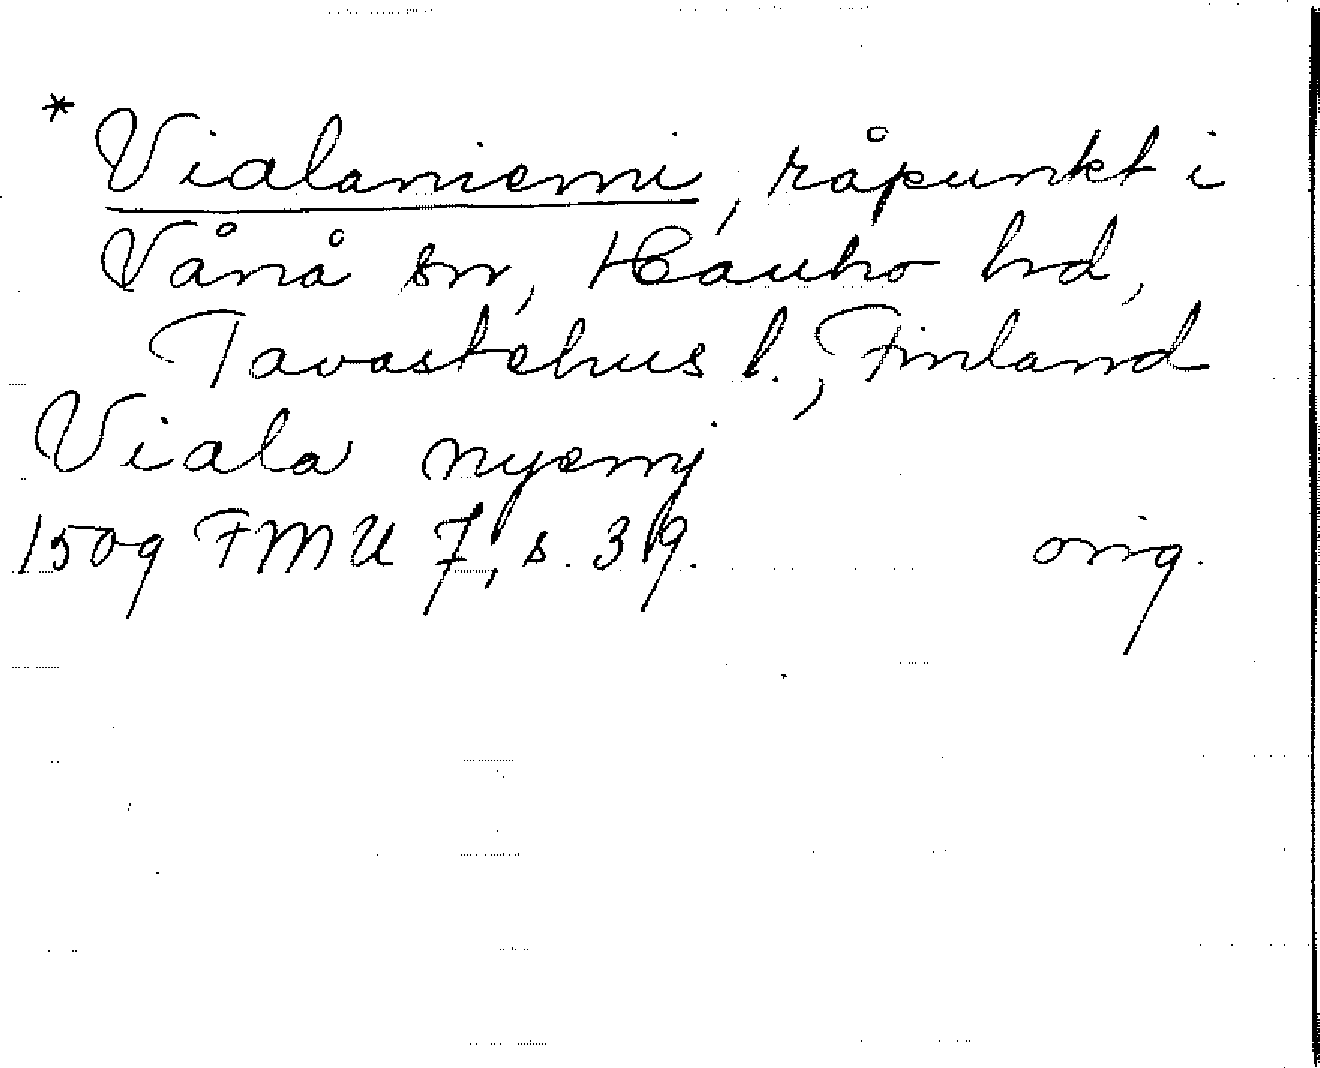 * Vialaniemi, råpunkt i
Vånå sn, Hauho hd,
Tavastehus l., Finland
Viala nyemj
1509 FMU 7, s. 39. orig.